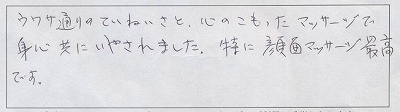 ウワサ通りのていねいさと、心のこもったマッサージで
身心共にいやされました。特に顔面マッサージ最高
です。